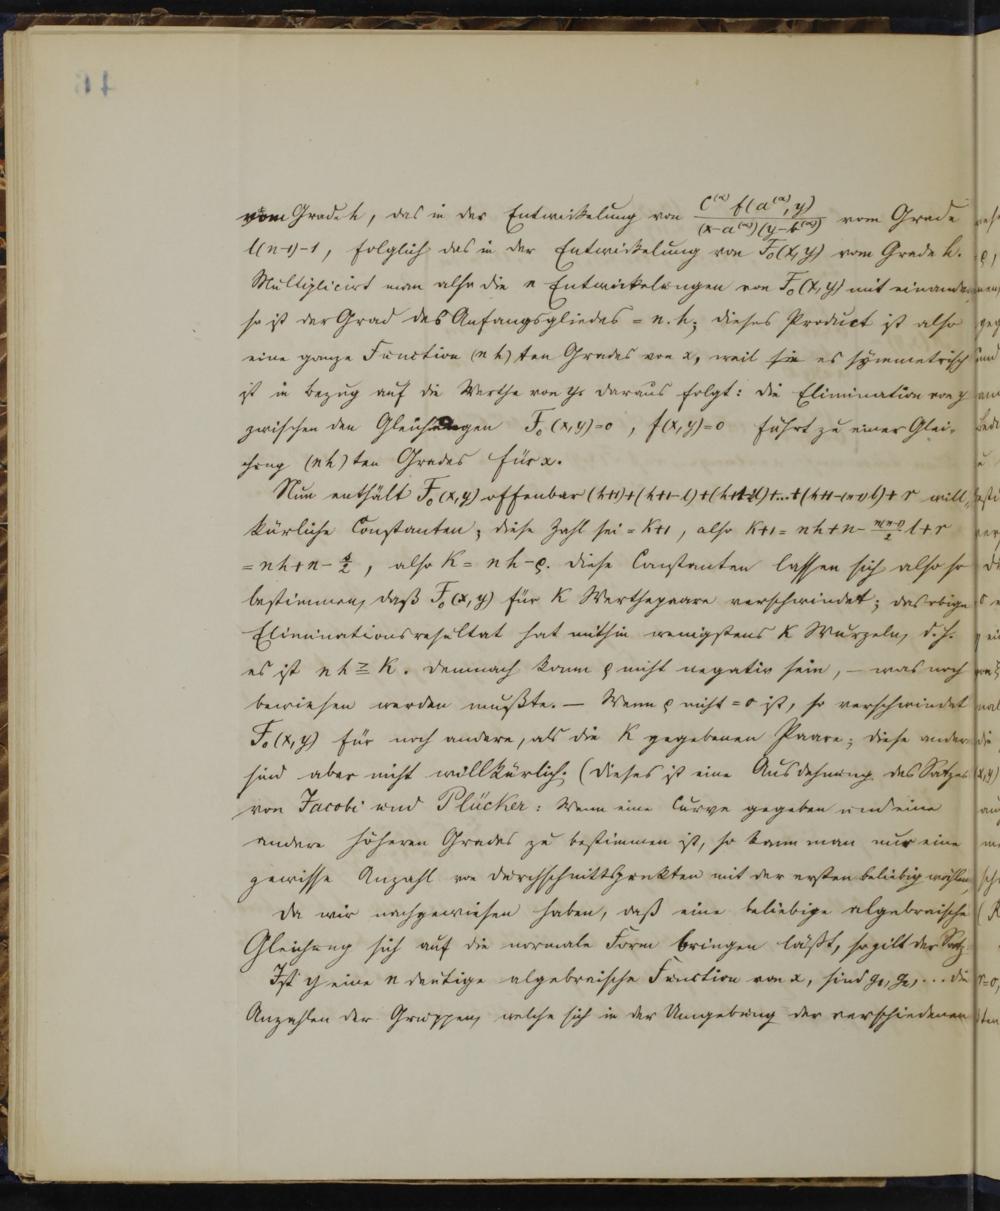 vom Grade h, das in der Entwickelung von \frac{C^{(α)} f(a^{(α)}, y)}{(x-a^{(α)})(y-b^{(α)})} vom Grade
l(n-1)-1, folglich das in der Entwickelung von F₀(x,y) vom Grade h.
Multiplicirt man also die n Entwickelungen von F₀(x,y) mit einander,
so ist der Grad des Anfangsgliedes = n.h; dieses Product ist also
eine ganze Function (nh)ten Grades von x, weil es symmetrisch
ist in Bezug auf die Werthe von y; daraus folgt: die Elimination von y
zwischen den Gleichungen F₀(x,y)=0, f(x,y)=0 führt zu einer Glei-
chung (nh)ten Grades für x.
Nun enthält F₀(x,y) offenbar (h+1)+(h+1-l)+(h+1-2l)+...+(h+1-(n-1)l)+r will-
kürliche Constanten; diese Zahl sei = K+1, also K+1 = nh+n-\frac{n(n-1)}{2}l+r
= nh+n-\frac{s}{2}, also K = nh-ρ. Diese Constanten lassen sich also so
bestimmen, daß F₀(x,y) für K Werthepaare verschwindet; das obige
Eliminationsresultat hat mithin wenigstens K Wurzeln, d.h.
es ist nh ≧ K. Demnach kann ρ nicht negativ sein, — was noch
bewiesen werden mußte. — Wenn ρ nicht = 0 ist, so verschwindet
F₀(x,y) für noch andere, als die K gegebenen Paare; diese andern
sind aber nicht willkürlich. (Dieses ist eine Ausdehnung des Satzes
von Jacobi und Plücker: Wenn eine Curve gegeben und eine
andere höheren Grades zu bestimmen ist, so kann man nur eine
gewisse Anzahl von Durchschnittspunkten mit der ersten beliebig wählen
Da wir nachgewiesen haben, daß eine beliebige algebraische
Gleichung sich auf die normale Form bringen läßt, so gilt der Satz:
Ist y eine n deutige algebraische Function von x, sind g₁, g₂, ... die
Anzahlen der Gruppen, welche sich in der Umgebung der verschiedenen